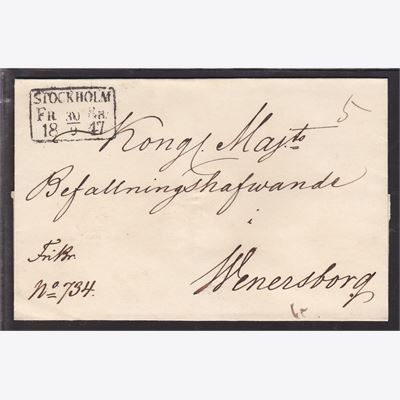 STOCKHOLM
FR 30 BR
18 9 47
5
Kongl Majts
Befallningshafwande
i
FriBr.
Wenersborg
No 734.